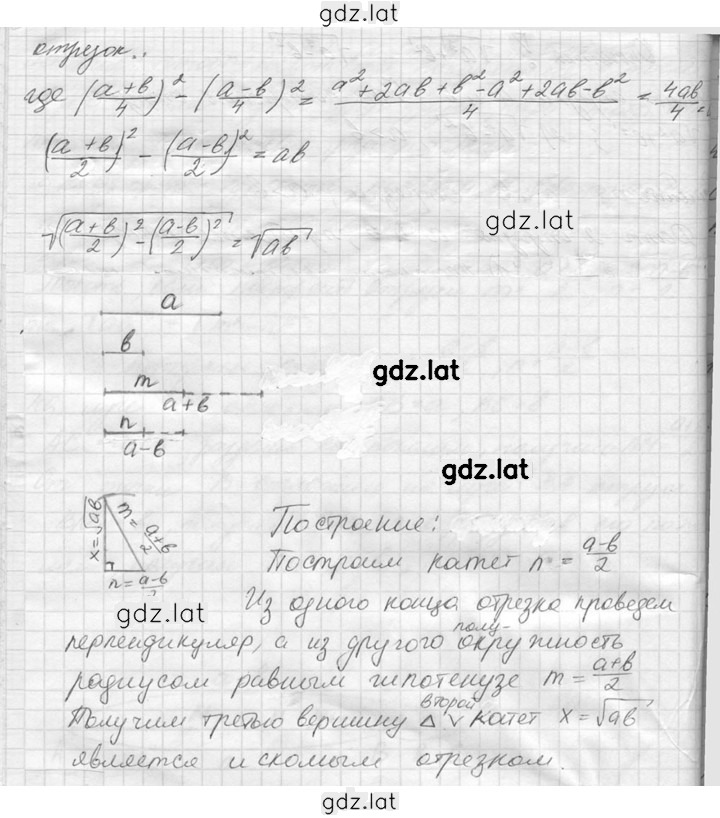 gdz.lat
отрезок..
где (a+в/4)² - (a-в/4)² = a²+2aв+в²-a²+2aв-в²/4 = 4aв/4 =
(a+в/2)² - (a-в/2)² = aв
gdz.lat
√((a+в/2)² - (a-в/2)²) = √aв
a
в
gdz.lat
m
a+в
n
a-в
gdz.lat
x=√aв
m=a+в/2
n=a-в/2
Построение:
Построим катет n=a-в/2
gdz.lat
Из одного конца отрезка проведем
перпендикуляр, а из другого полуокружность
радиусом равным гипотенузе m=a+в/2
Получим третью вершину △ второй ∨ катет x=√aв
является искомым отрезком.
gdz.lat